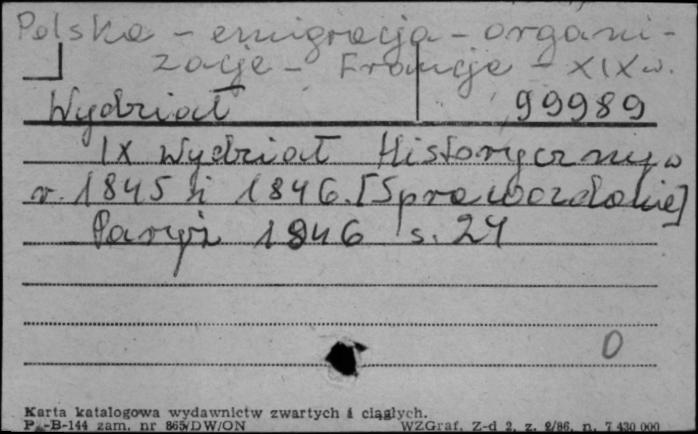 Polska – emigracja – organi-
zacje – Francja – XIX w.
Wydział 99989
IX Wydział Historyczny w
r. 1845 i 1846. [Sprawozdanie]
Paryż 1846 s. 24
0
Karta katalogowa wydawnictw zwartych i ciągłych.
-B-144 zam. nr 865/DW/ON WZGraf. Z-d 2, z. 2/86, n. 7 430 000